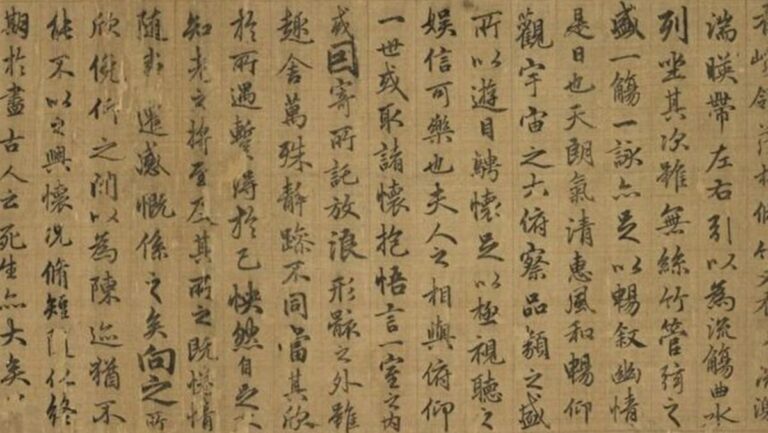 峻領茂林脩竹又有清流激
湍暎帶左右引以為流觴曲水
列坐其次雖無絲竹管弦之
盛一觴一詠亦足以暢叙幽情
是日也天朗氣清惠風和暢仰
觀宇宙之大俯察品類之盛
所以遊目騁懷足以極視聽之
娛信可樂也夫人之相與俯仰
一世或取諸懷抱悟言一室之內
或因寄所託放浪形骸之外雖
趣舍萬殊靜躁不同當其欣
於所遇暫得於己怏然自足不
知老之將至及其所之既惓情
隨事遷感慨係之矣向之所
欣俛仰之間以為陳迹猶不
能不以之興懷況脩短隨化終
期於盡古人云死生亦大矣